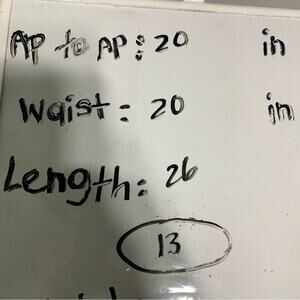 Ap to Ap: 20 in
Waist: 20 in
Length: 26
13